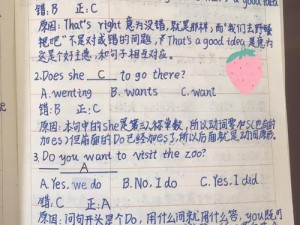 错: 正:C
原因: That's right 意为没错,就是那样,而"我们去野餐
把吧"不是对或错的问题,而That's a good idea是意为
这是个好主意,和句子相互对应。
2.Does she C to go there?
A.wenting B. wants C. want
错:B 正:C
原因:本句中的she是第三人称单数,所以动词要加s(
的加es)但前面的Do已经加es了,所以后面就是动词原形。
3.Do you want to visit the zoo?
A
A.Yes. we do B.No. I do C.Yes. I did
错:C 正:A
原因:问句开头是个Do,用什么问就用什么答,you既可